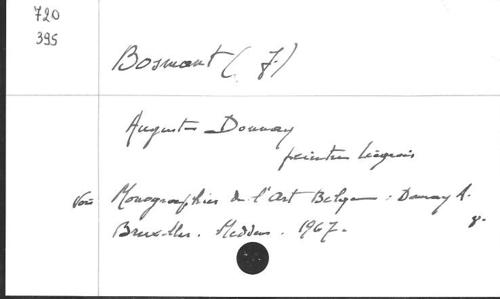 720
395
Bosmant (J.)
Auguste Donnay
peintre liégeois
Voir Monographies de l'Art Belge : Donnay A.
Bruxelles. Meddens. 1967. 8°